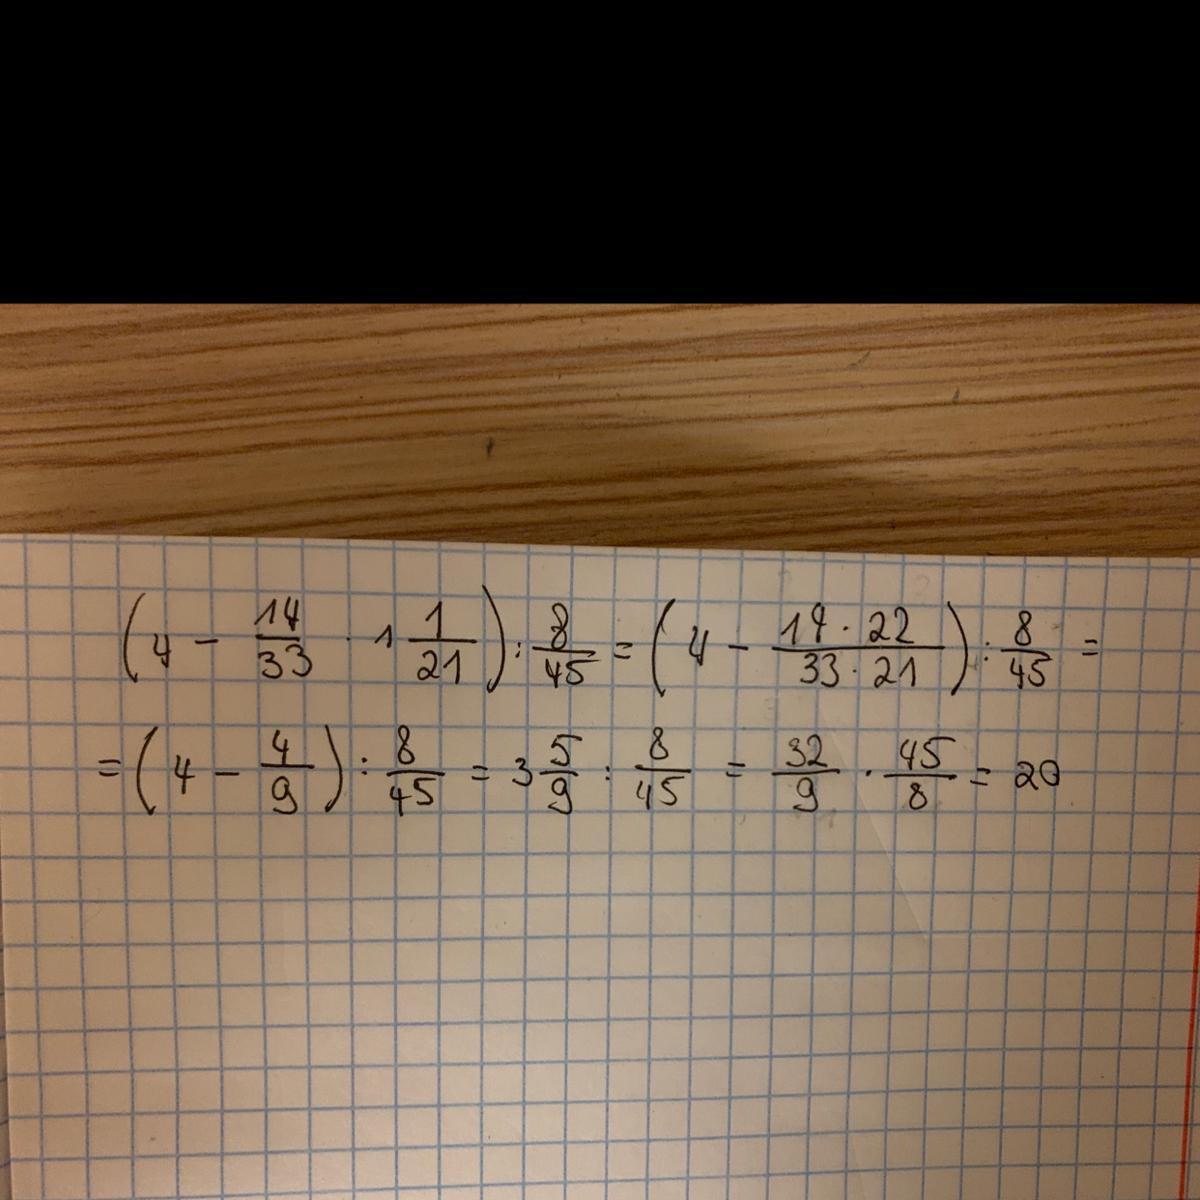 (4 - 14/33 · 1 1/21) : 8/45 = (4 - 14·22/33·21) : 8/45 =
= (4 - 4/9) : 8/45 = 3 5/9 : 8/45 = 32/9 · 45/8 = 20